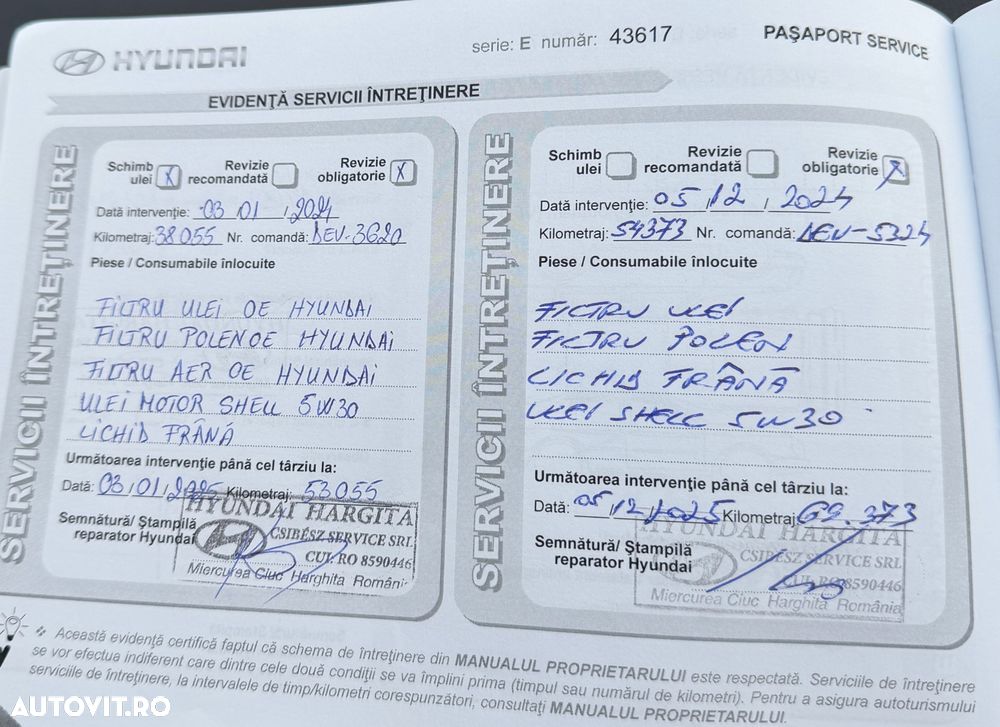 HYUNDAI
serie: E număr: 43617
PAŞAPORT SERVICE
EVIDENŢĂ SERVICII ÎNTREŢINERE
SERVICII ÎNTREŢINERE
Schimb ulei x Revizie recomandată Revizie obligatorie x
Dată intervenţie: 03 01 2024
Kilometraj: 38055 Nr. comandă: DEV-3620
Piese / Consumabile înlocuite
FILTRU ULEI OE HYUNDAI
FILTRU POLEN OE HYUNDAI
FILTRU AER OE HYUNDAI
ULEI MOTOR SHELL 5W30
LICHID FRÂNĂ
Următoarea intervenţie până cel târziu la:
Dată: 03/01/2025 Kilometraj: 53055
Semnătură/ Ştampilă
reparator Hyundai
HYUNDAI HARGITA
CSIBÉSZ SERVICE SRL
CUI. RO 8590446
Miercurea Ciuc Harghita Români
SERVICII ÎNTREŢINERE
Schimb ulei Revizie recomandată Revizie obligatorie x
Dată intervenţie: 05 12 2024
Kilometraj: 54373 Nr. comandă: DEV-5324
Piese / Consumabile înlocuite
FILTRU ULEI
FILTRU POLEN
LICHID FRÂNĂ
ULEI SHELL 5W30
Următoarea intervenţie până cel târziu la:
Dată: 05/12/2025 Kilometraj: 69.373
Semnătură/ Ştampilă
reparator Hyundai
HYUNDAI HARGITA
CSIBÉSZ SERVICE SRL
CUI. RO 8590446
Miercurea Ciuc Harghita România
Această evidenţă certifică faptul că schema de întreţinere din MANUALUL PROPRIETARULUI este respectată. Serviciile de întreţinere
se vor efectua indiferent care dintre cele două condiţii se va împlini prima (timpul sau numărul de kilometri). Pentru a asigura autoturismului
serviciile de întreţinere, la intervalele de timp/kilometri corespunzători, consultaţi MANUALUL PROPRIETARULUI.
AUTOVIT.RO